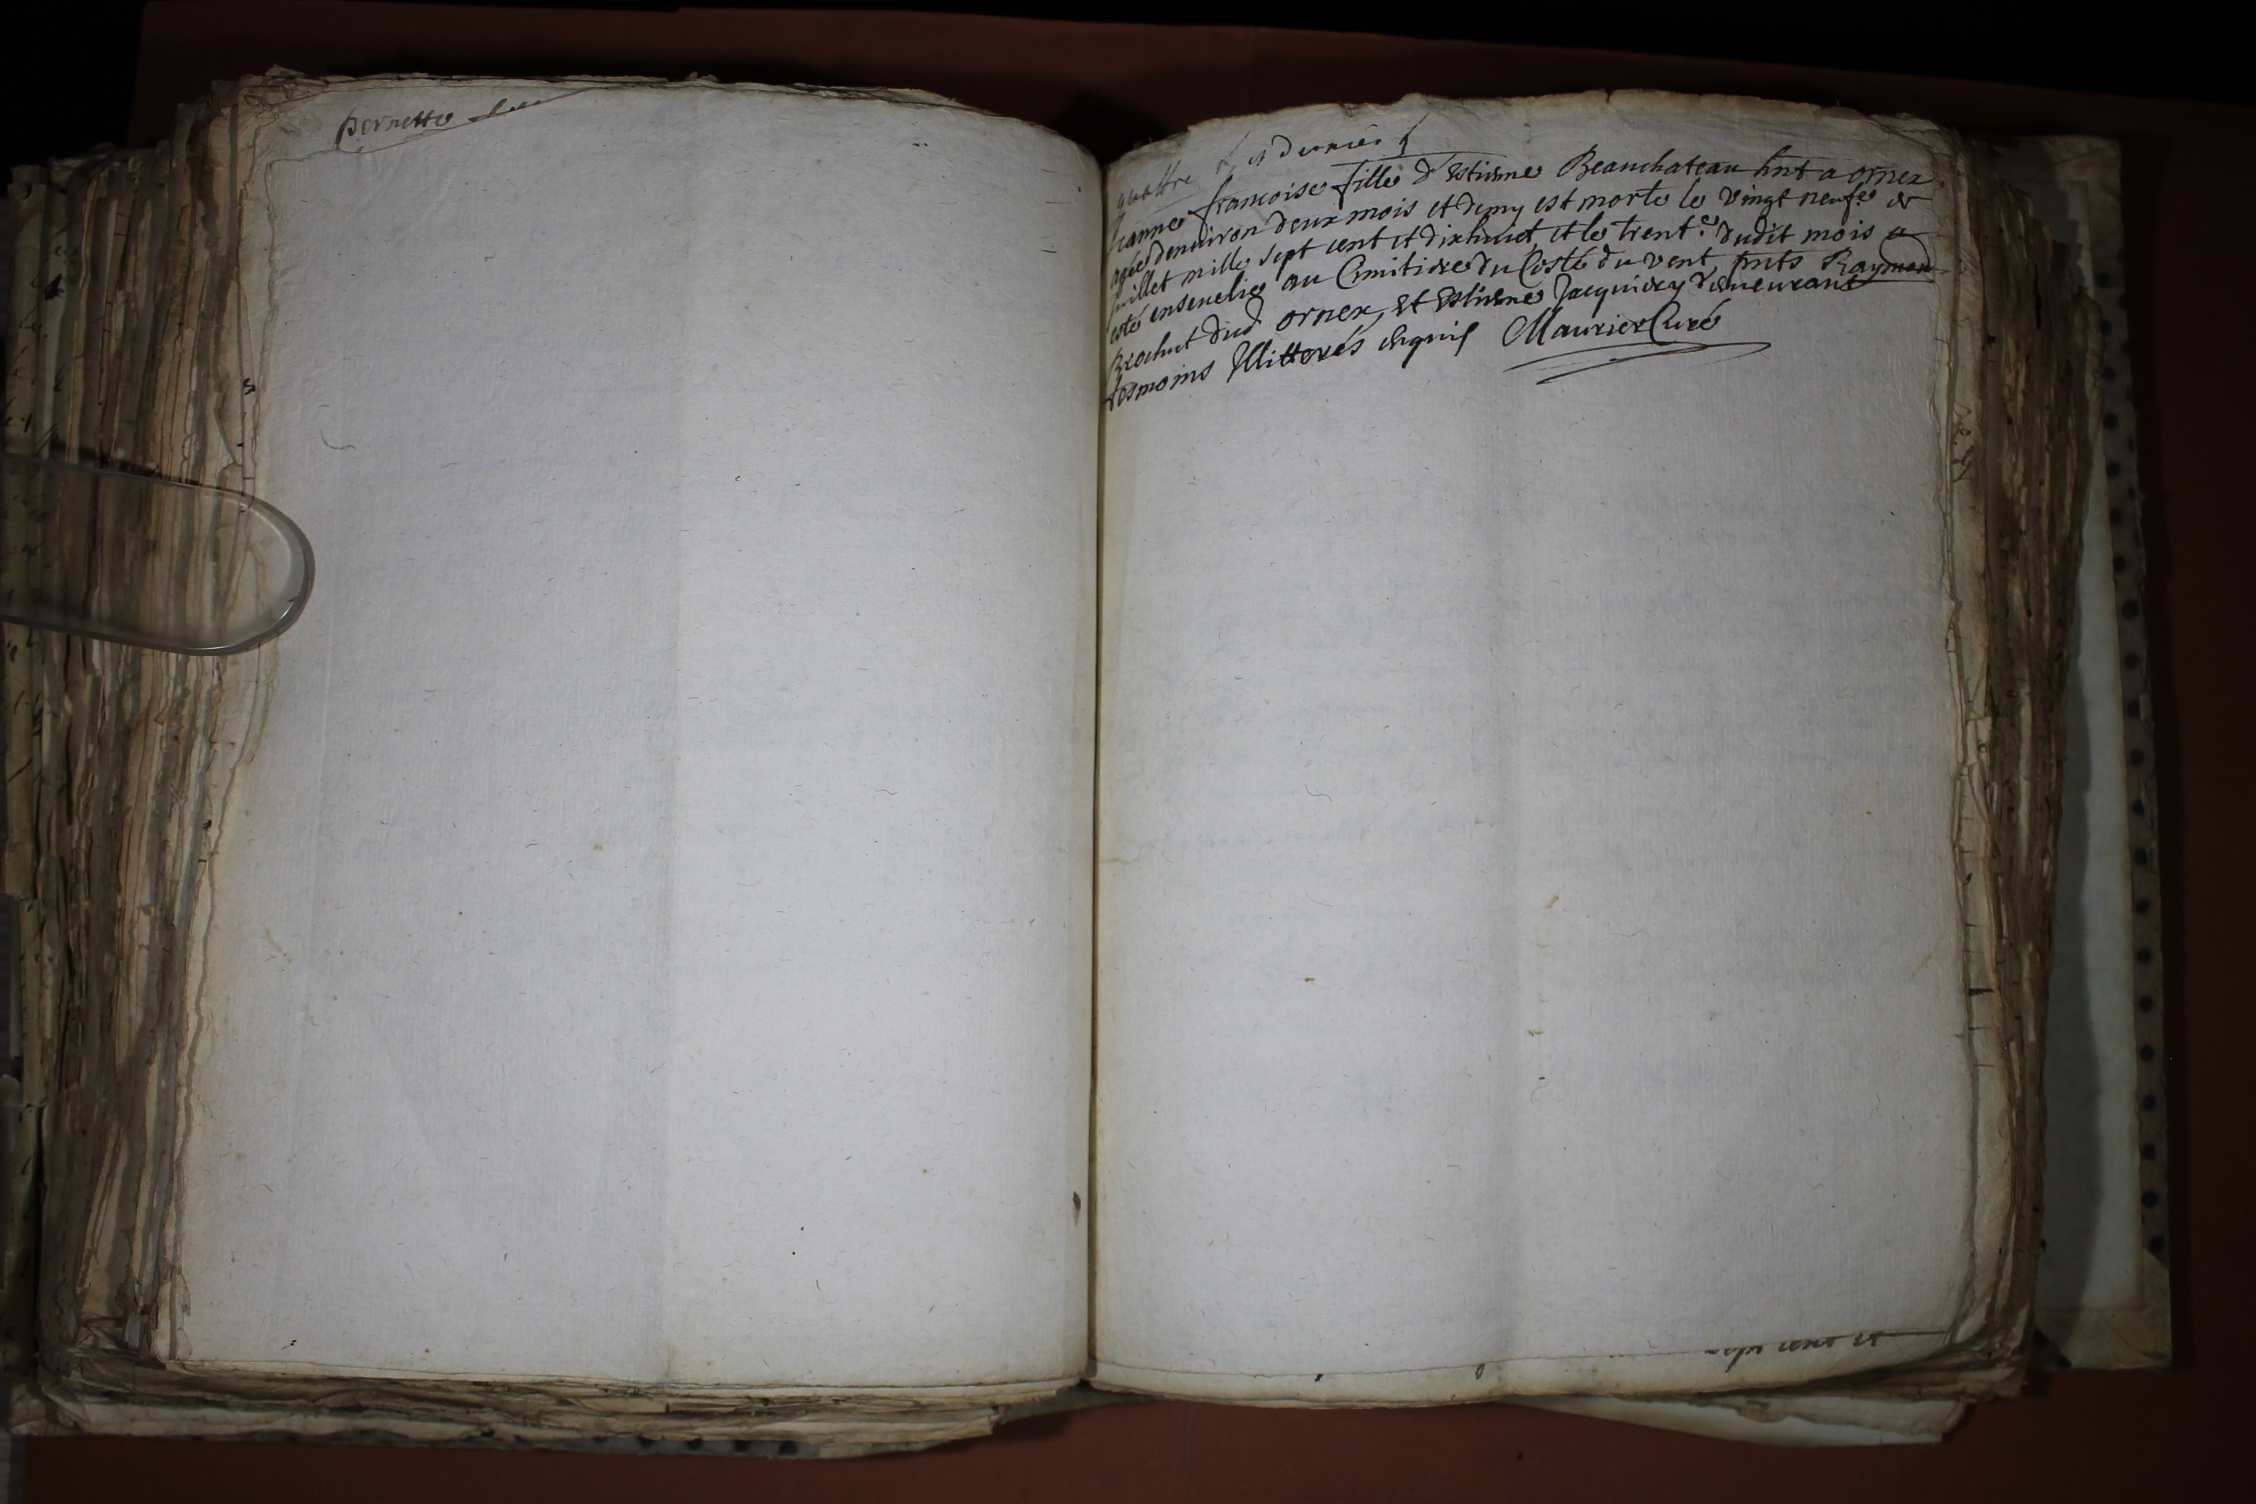 pernette
quattre et dernier
Jeanne francoise fille d'Estienne Beauchateau hnt a ornex
agée denuiron deux mois et demy est morte le vingt neufe de
Juillet mille sept cent et dixhuict et le trent.e dudit mois a
esté enseuelie au Cimitiere du Costé du vent pnts Raymond
Brochut dud ornex, et Estienne Jacquiery demeurant
tesmoins Illitterés enquis Maurier Curé
sept cent et